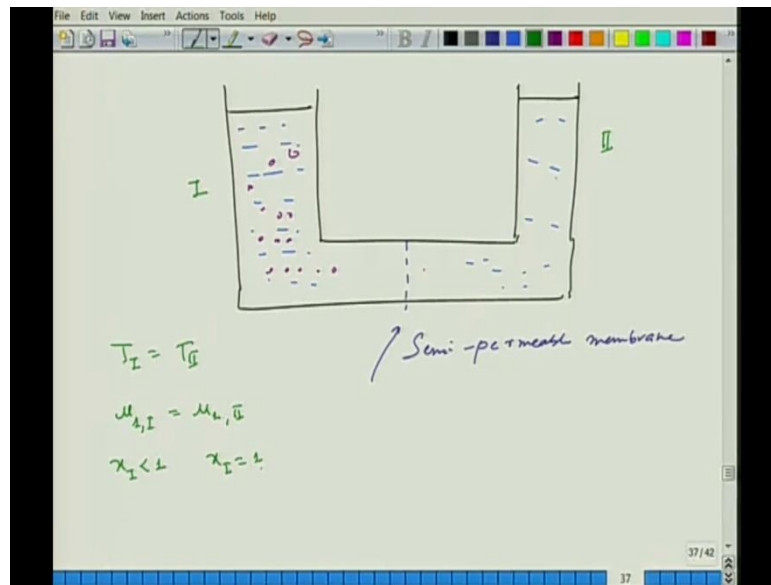 File Edit View Insert Actions Tools Help
I
II
Semi-permeable membrane
T_I = T_II
μ_1,I = μ_1,II
x_I < 1 x_I = 1
37/42
37